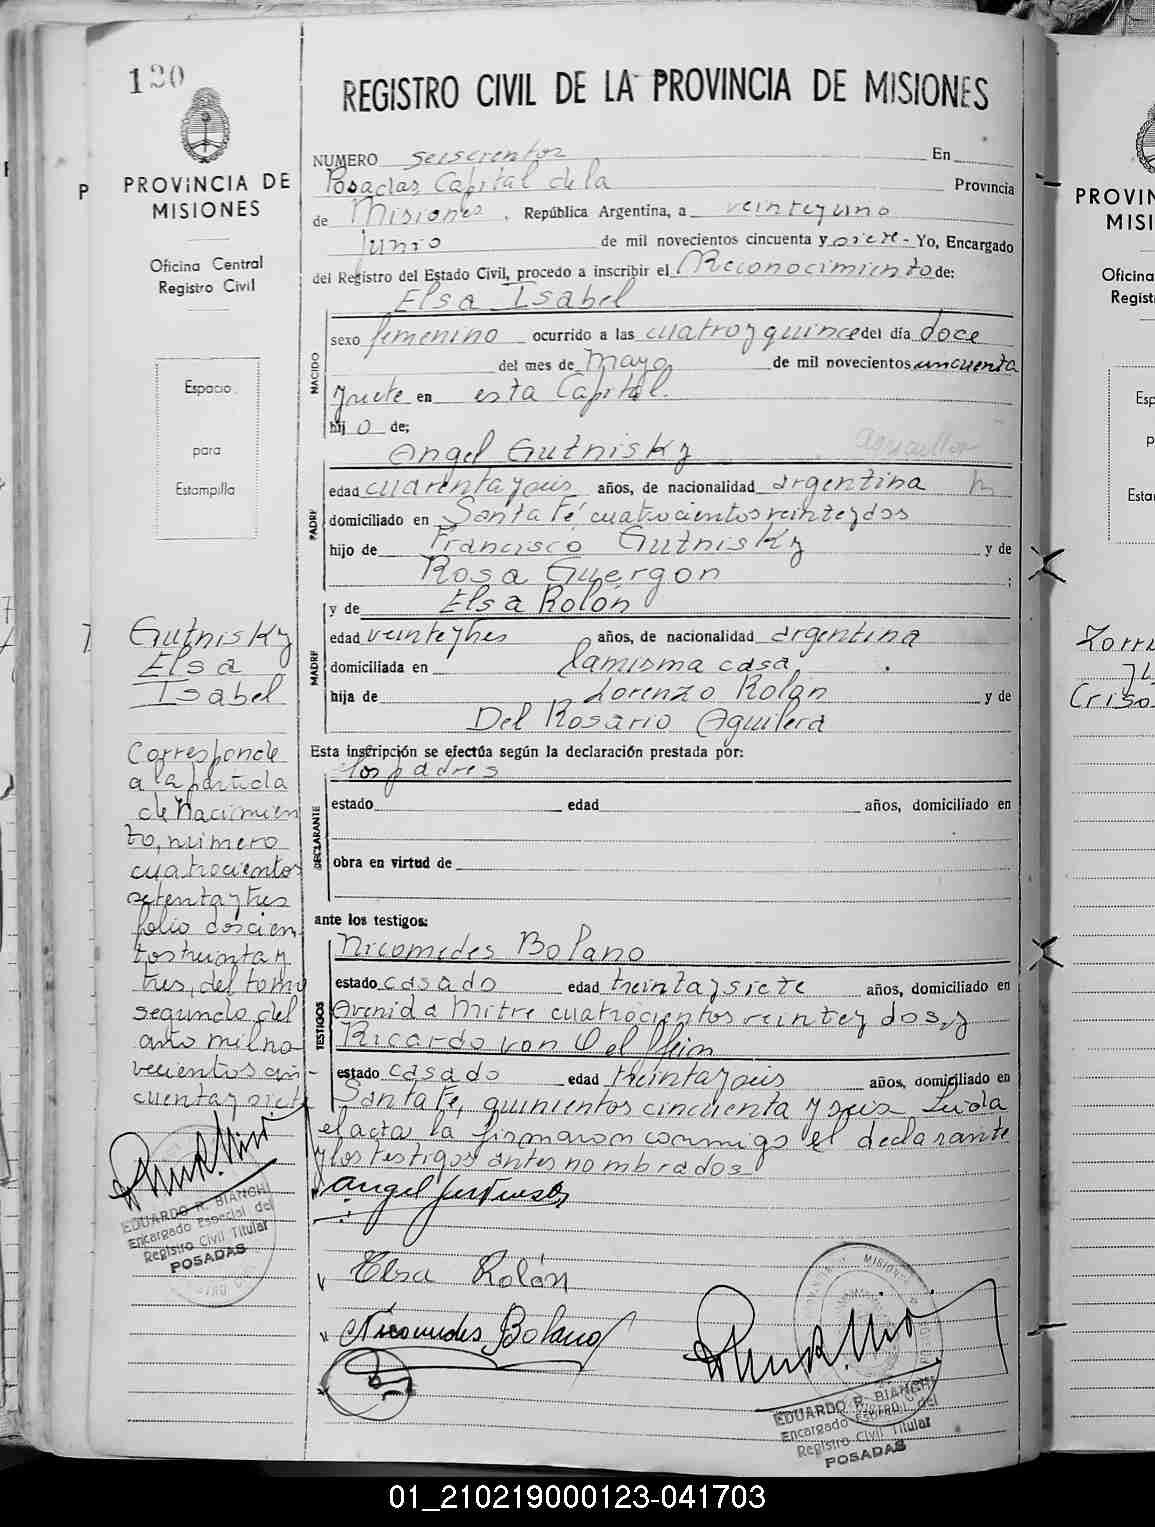 120
PROVINCIA DE
MISIONES
Oficina Central
Registro Civil
Espacio
para
Estampilla
Gutnisky
Elsa
Isabel
Corresponde
a la partida
de nacimien
to, número
cuatrocientos
setenta y tres
folio doscien
tos treinta y
tres, del tomo
segundo del
año mil no
vecientos cin-
cuenta y siete
EDUARDO R. BIANCHI
Encargado Especial del
Registro Civil Titular
POSADAS
REGISTRO CIVIL DE LA PROVINCIA DE MISIONES
NUMERO seiscientos En
Posadas Capital de la Provincia
de Misiones, República Argentina, a veinteyuno
junio de mil novecientos cincuenta y siete - Yo, Encargado
del Registro del Estado Civil, procedo a inscribir el Reconocimiento de:
Elsa Isabel
NACIDO
sexo femenino ocurrido a las cuatro y quince del día doce
del mes de Mayo de mil novecientos cincuenta
y siete en esta Capital.
hij o de;
Angel Gutnisky
PADRE
edad cuarenta y seis años, de nacionalidad argentina
domiciliado en Santa Fé, cuatrocientos veinte y dos
hijo de Francisco Gutnisky y de
Rosa Guergon ;
y de Elsa Rolón
MADRE
edad veinte y tres años, de nacionalidad argentina
domiciliada en la misma casa,
hija de Lorenzo Rolón y de
Del Rosario Aguilera
Esta inscripción se efectúa según la declaración prestada por:
los padres
DECLARANTE
estado edad años, domiciliado en
obra en virtud de
ante los testigos:
Nicomedes Bolano
TESTIGOS
estado casado edad treinta y siete años, domiciliado en
Avenida Mitre cuatrocientos veinte y dos, y
Ricardo von
estado casado edad treinta y seis años, domiciliado en
Santa Fe, quinientos cincuenta y seis Leida
el acta la firmaron conmigo el declarante
y los testigos antes nombrados
Angel Gutnisky
Elsa Rolón
Nicomedes Bolano
EDUARDO R. BIANCHI
Encargado Especial del
Registro Civil Titular
POSADAS
PROVIN
MISI
Oficina
Regist
Esp
p
Esta
Zorri
Criso
01_210219000123-041703